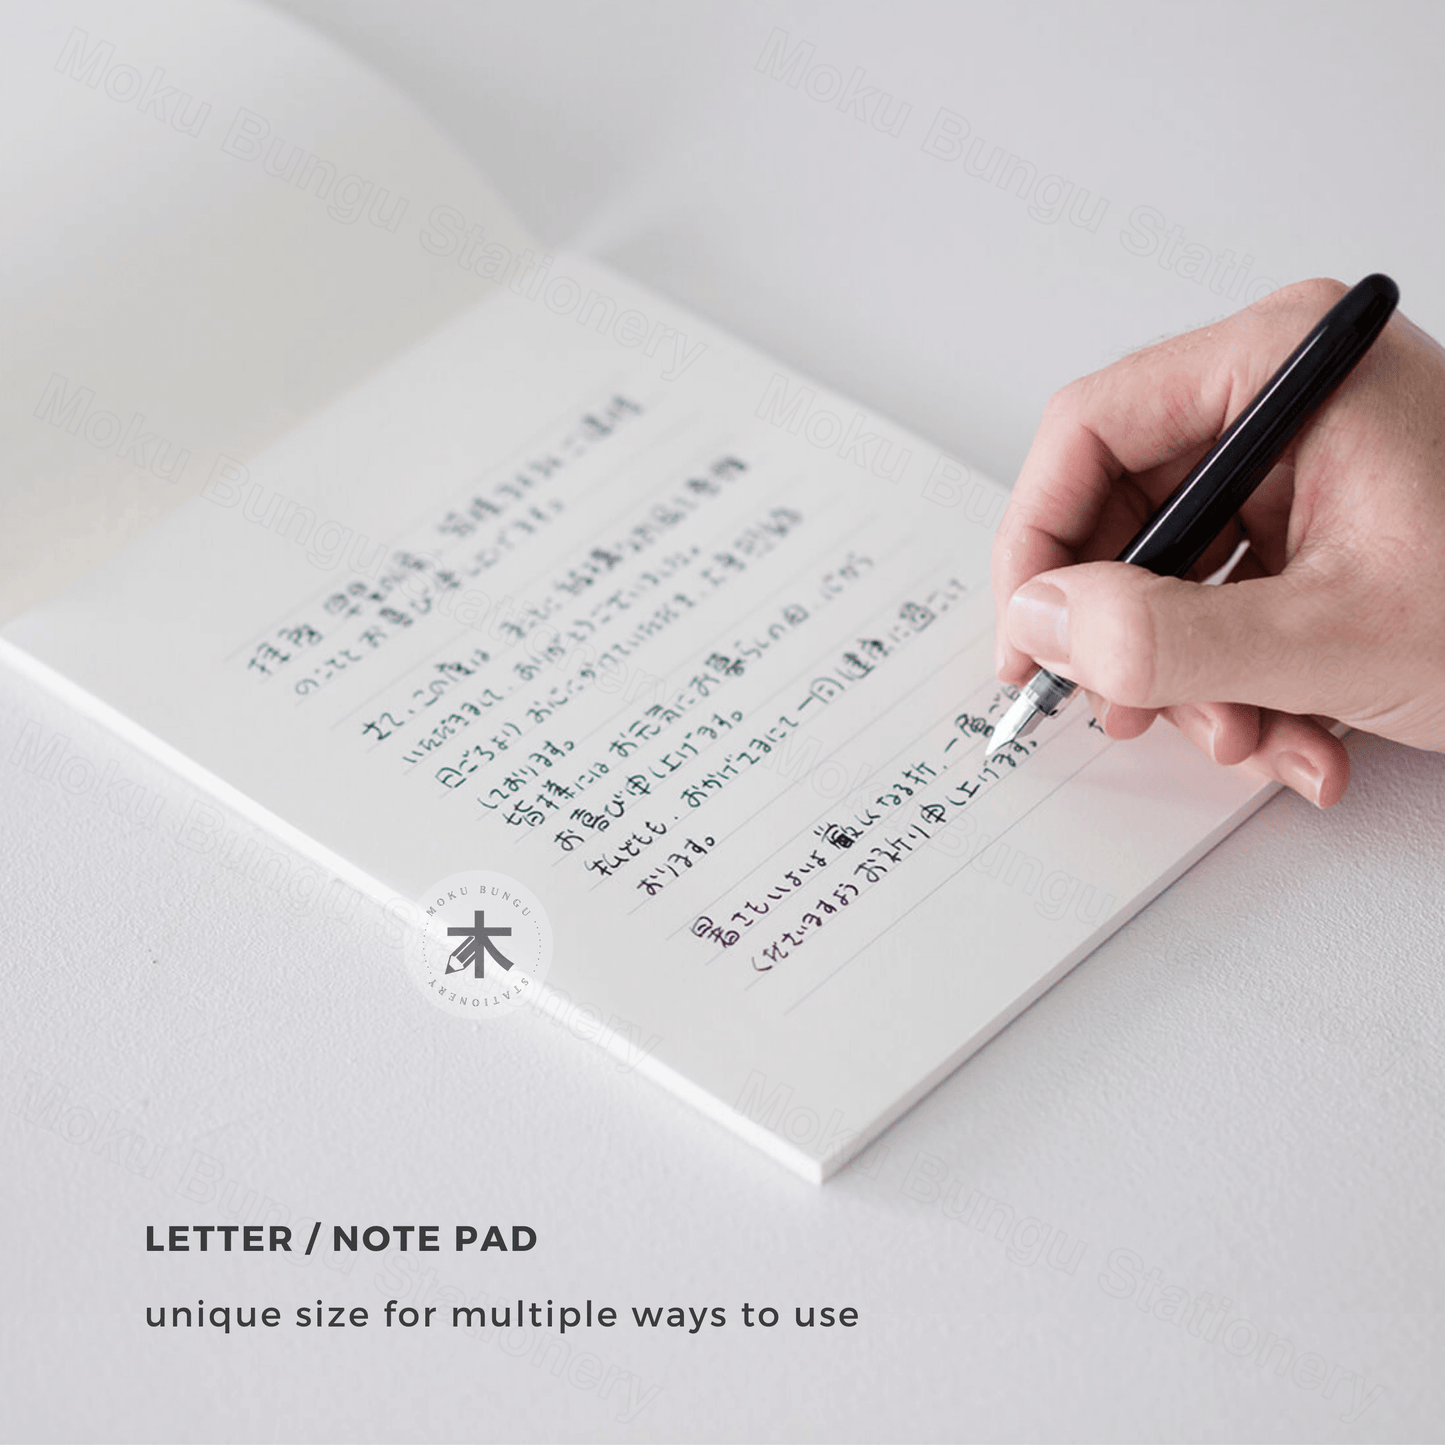 拝啓 盛夏の候、皆様におかれ
のこととお喜び申し上げます。
さて、この度は
いただきまして、ありがとうございました。
日ごろより お心にかけていただき、
しております。
皆様には お元気にお暮らしの由、心から
お喜び申し上げます。
私どもも、おかげさまにて 一同 健康に過ごして
おります。
暑さもいよいよ 厳しくなる折、一層
くださいますよう お祈り申し上げます。
MOKU BUNGU
木
STATIONERY
LETTER / NOTE PAD
unique size for multiple ways to use
Moku Bungu Stationery
Moku Bungu Stationery
Moku Bungu Stationery
Moku Bungu Stationery
Moku Bungu Stationery
Moku Bungu Stationery
Moku Bungu Stationery
Moku Bungu Stationery